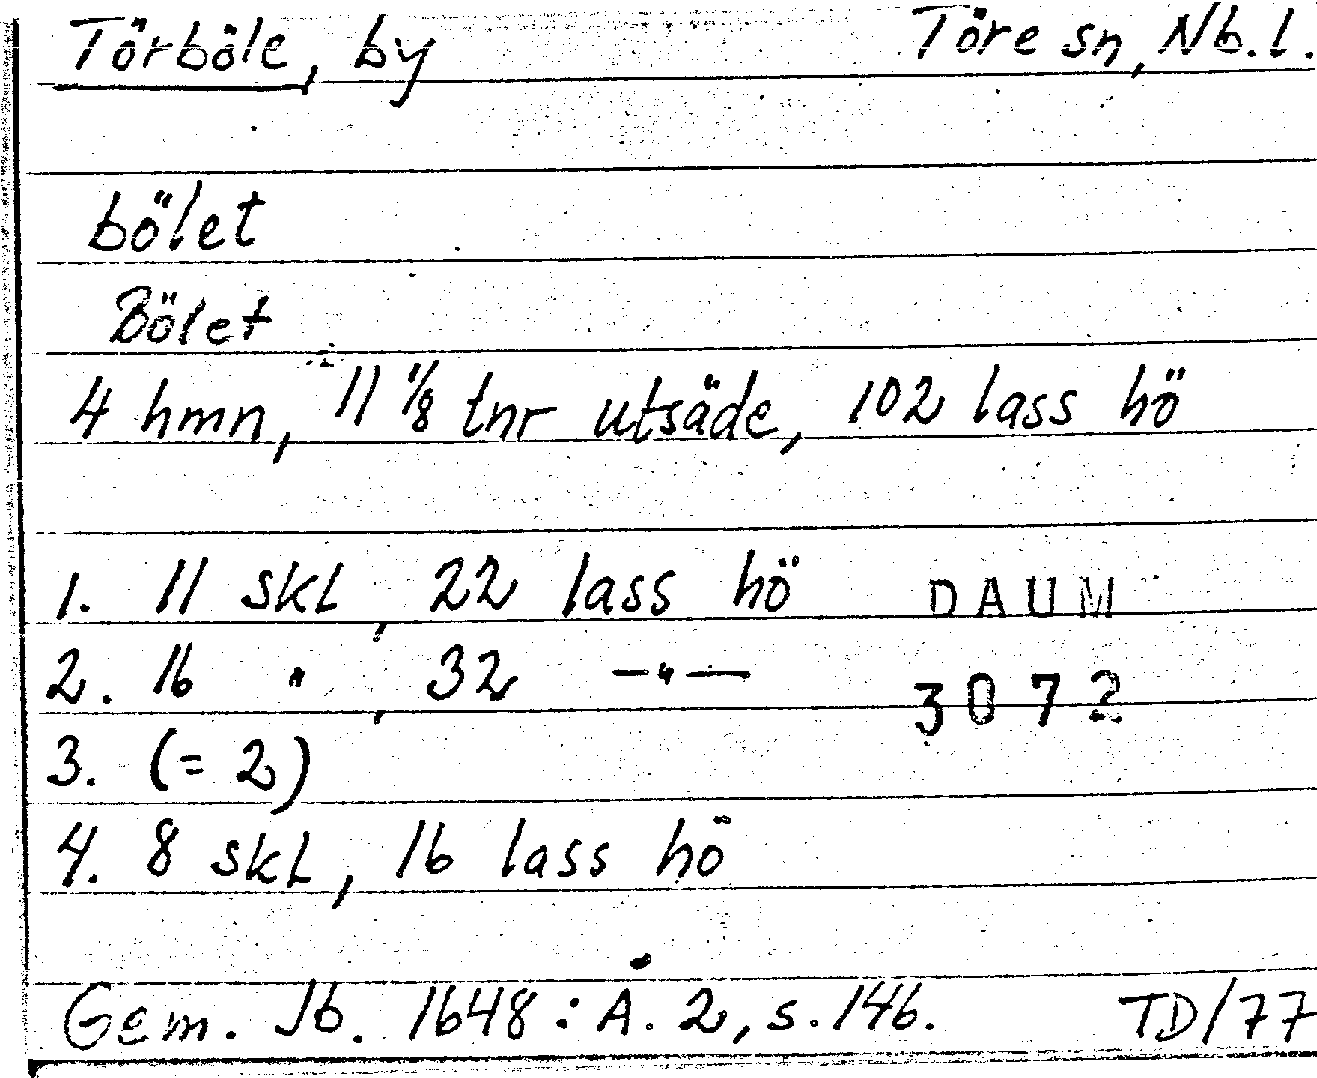 Törböle, by Töre sn, Nb.l.
bölet
Bölet
4 hmn, 11 1/8 tnr utsäde, 102 lass hö
1. 11 skl, 22 lass hö DAUM
2. 16 ", 32 —"— 3072
3. (= 2)
4. 8 skl, 16 lass hö
Gem. Jb. 1648: Å. 2, s. 146. TD/77